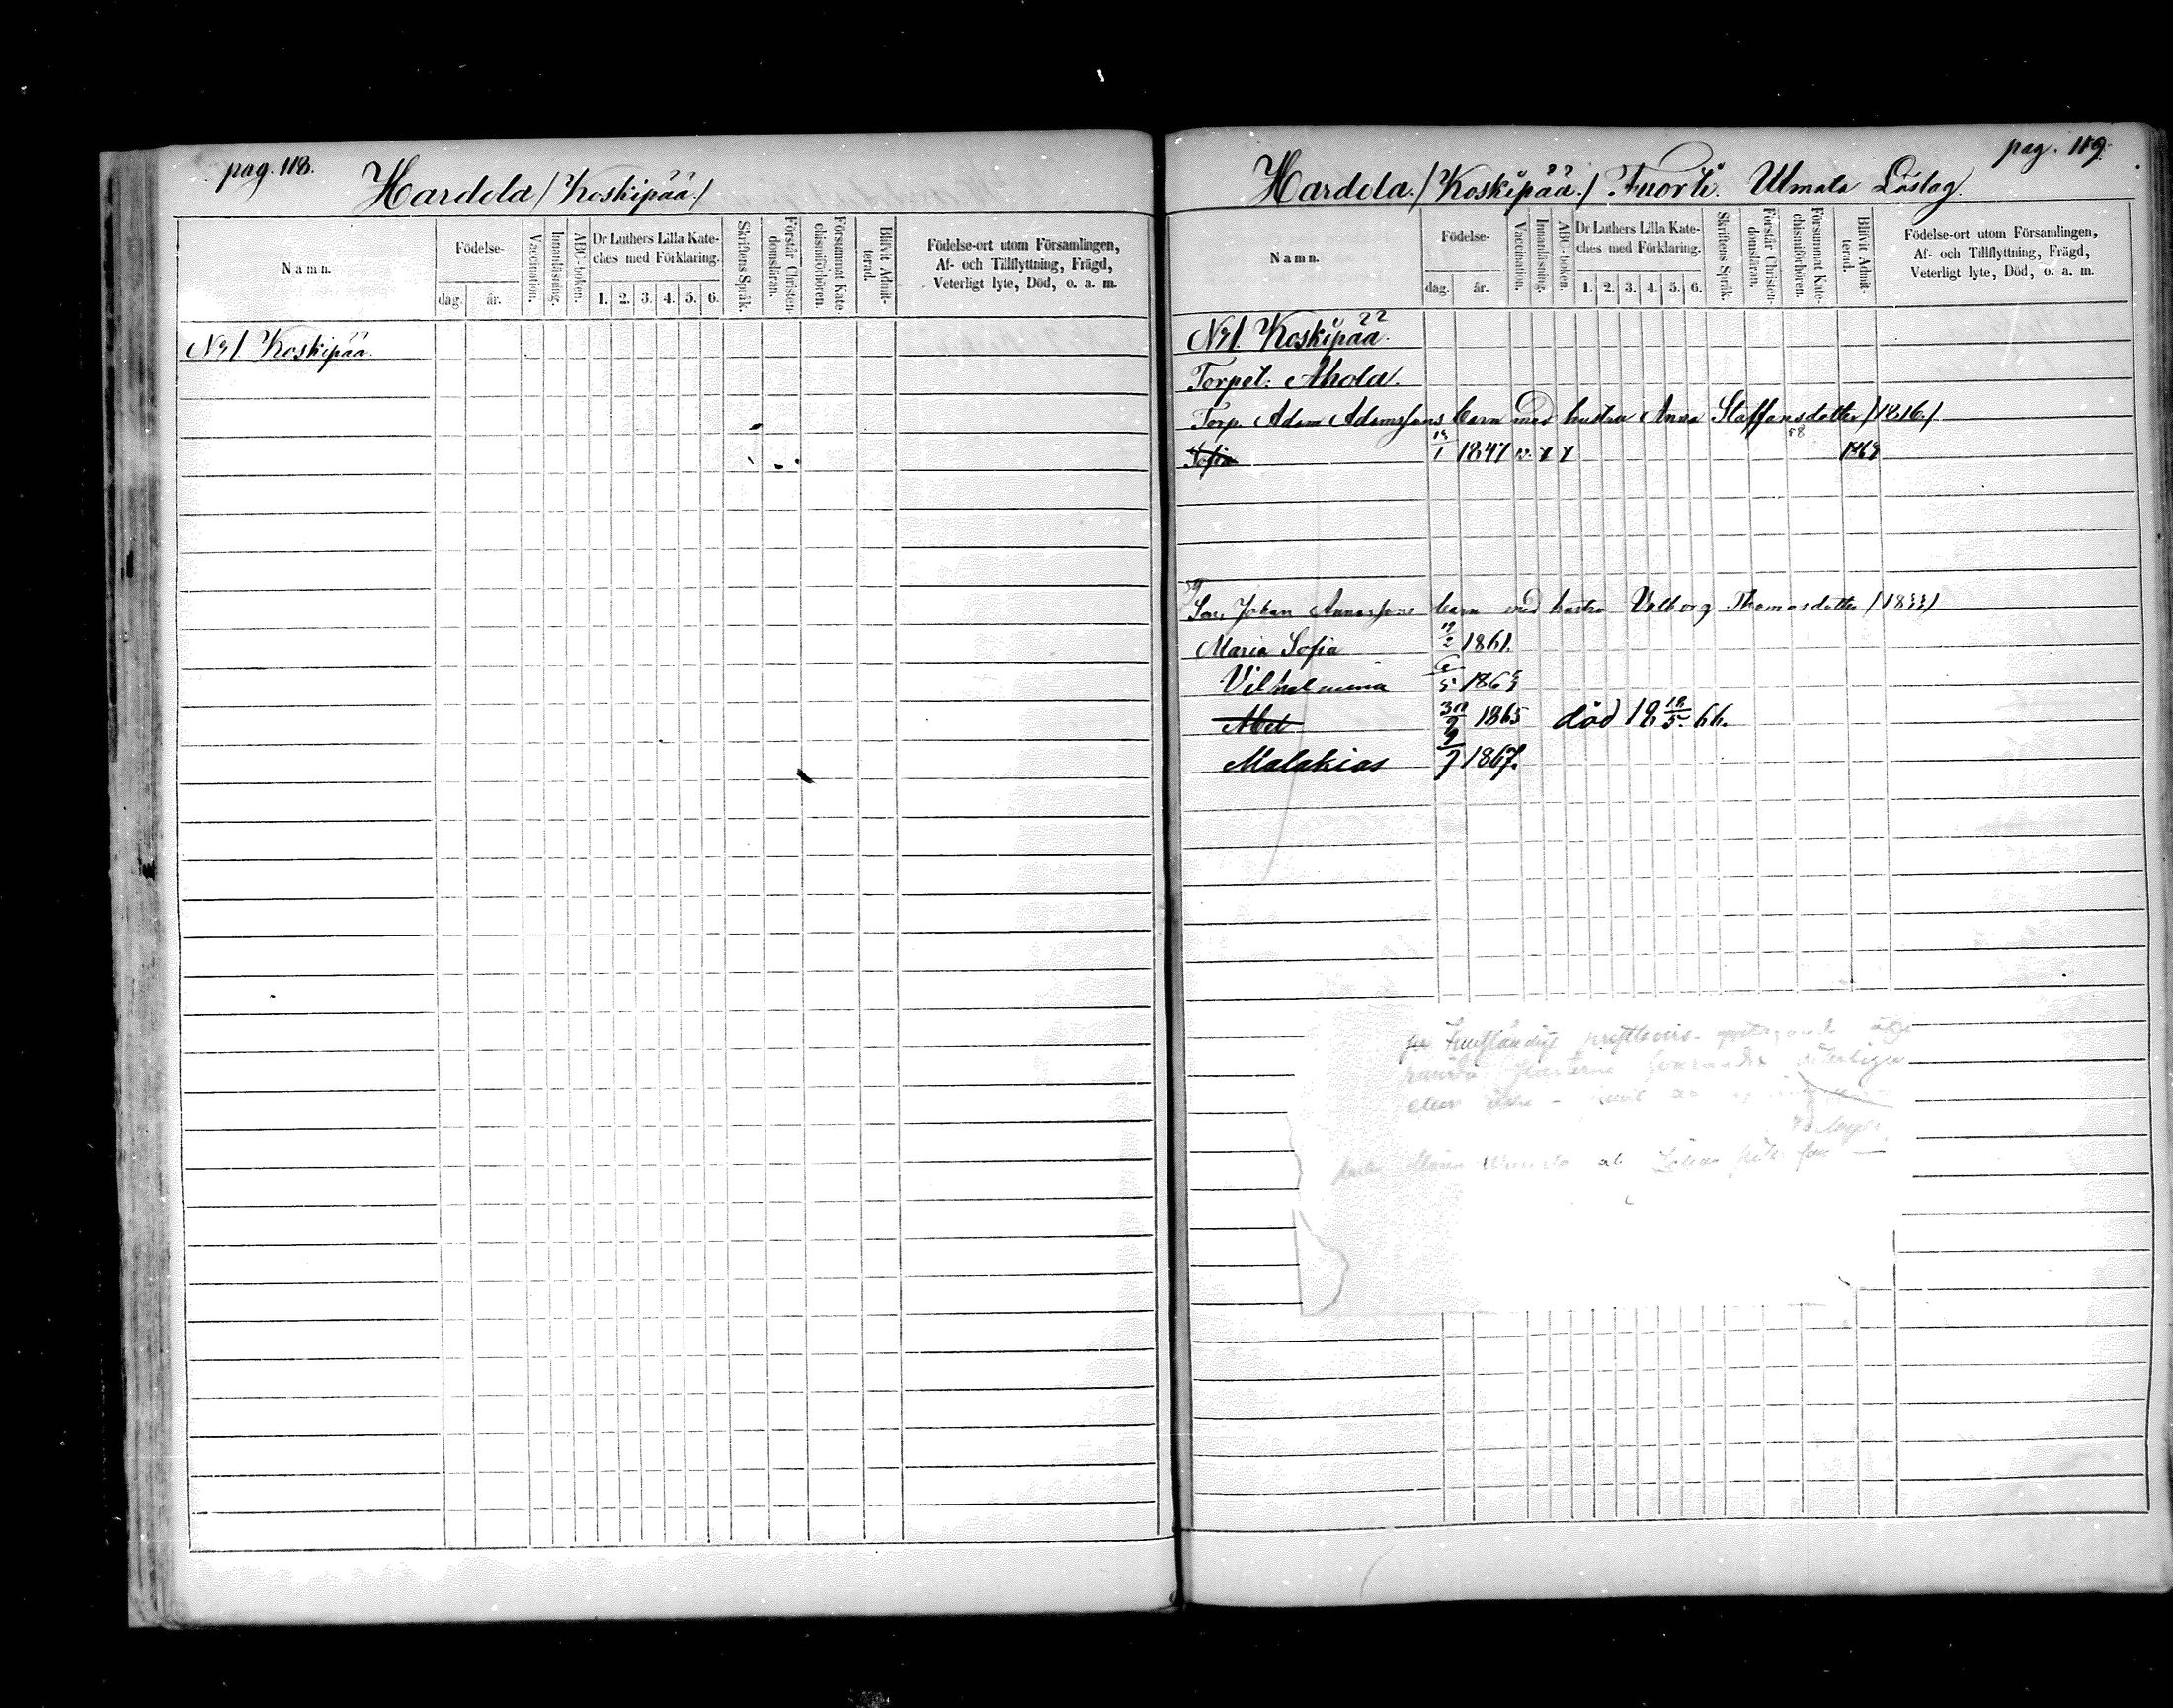 pag. 118.
Hardela / Koskipää /
Namn.
Födelse-
dag. år.
Vaccination.
Innanläsning.
ABC-boken.
Dr Luthers Lilla Kate-
ches med Förklaring.
1. 2. 3. 4. 5. 6.
Skriftens Språk.
Förstår Christen-
domsläran.
Försummat Kate-
chismiförhören.
Blifvit Admit-
terad.
Födelse-ort utom Församlingen,
Af- och Tillflyttning, Frägd,
Veterligt lyte, Död, o. a. m.
No 1 Koskipää.
pag. 119.
Hardela. / Koskipää. / Fuorti. Ulmala Löstag.
Namn.
Födelse-
dag. år.
Vaccination.
Innanläsning.
ABC-boken.
Dr Luthers Lilla Kate-
ches med Förklaring.
1. 2. 3. 4. 5. 6.
Skriftens Språk.
Förstår Christen-
domsläran.
Försummat Kate-
chismiförhören.
Blifvit Admit-
terad.
Födelse-ort utom Församlingen,
Af- och Tillflyttning, Frägd,
Veterligt lyte, Död, o. a. m.
No 1. Koskipää.
Torpet. Ahola.
Torp. Adam Adamssons barn med hustru Anna Staffansdotter / 1816. /
Sofia 1847 v. x x
Johan barn med hustru Valborg Thomasdotter
Maria Sofia 1861.
Vilhelmina 6/5 1863
Abel 30/9 1865 död 18 18/5 66.
Malakias 9/7 1867.